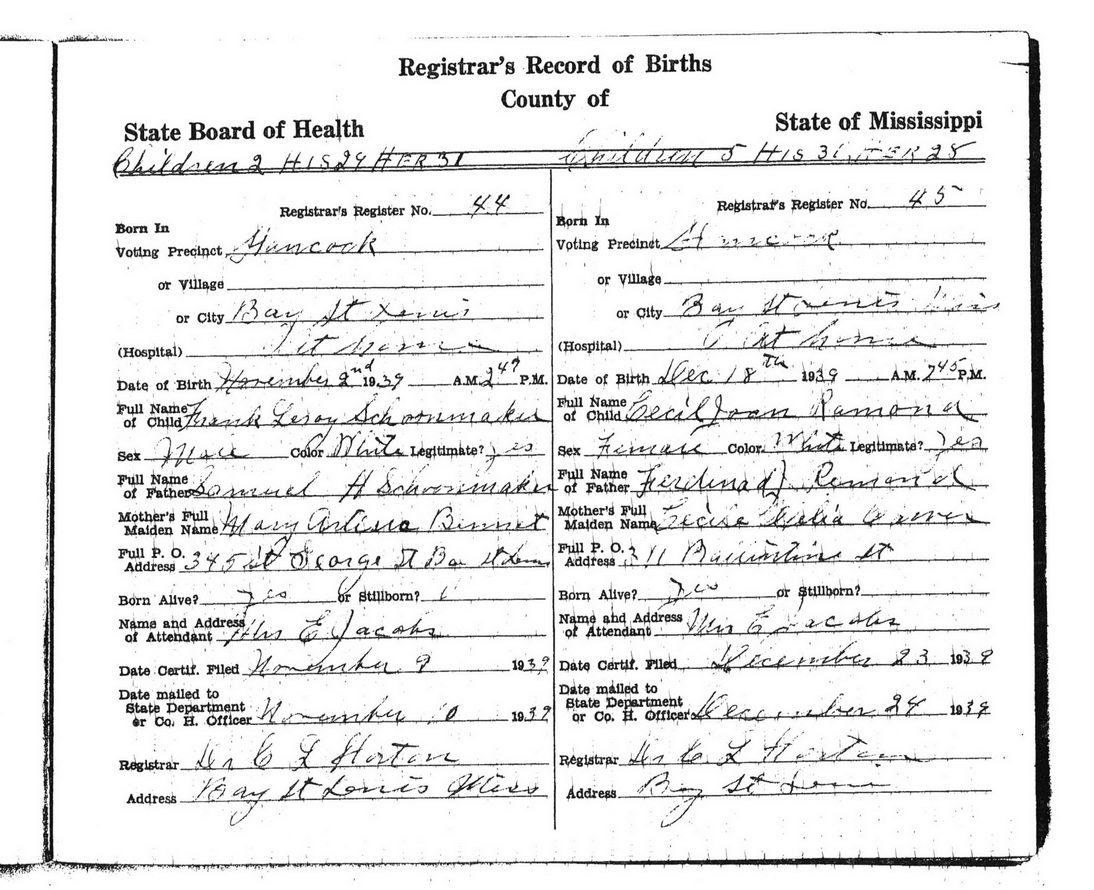 Registrar's Record of Births
County of
State Board of Health
State of Mississippi
Children 2 HIS 29 HER 31
Children 5 HIS 31 HER 28
Registrar's Register No. 44
Born In
Voting Precinct Hancock
or Village
or City Bay St Louis
(Hospital) At home
Date of Birth November 2nd 1939 A.M. 2 47 P.M.
Full Name of Child Frank Leroy Schoonmaker
Sex Male Color White Legitimate? yes
Full Name of Father Samuel H Schoonmaker
Mother's Full Maiden Name Mary Bennet
Full P. O. Address 345 St George St Bay St Louis
Born Alive? yes or Stillborn?
Name and Address of Attendant Mrs E Jacobs
Date Certif. Filed November 9 1939
Date mailed to
State Department
or Co. H. Officer November 10 1939
Registrar Dr C L Horton
Address Bay St Louis Miss
Registrar's Register No. 45
Born In
Voting Precinct Hancock
or Village
or City Bay St Louis Miss
(Hospital) At home
Date of Birth Dec 18th 1939 A.M. 7 45 P.M.
Full Name of Child Cecil Joan Ramond
Sex Female Color White Legitimate? yes
Full Name of Father Ferdinad J Remond
Mother's Full Maiden Name Cecile
Full P. O. Address 311 St
Born Alive? yes or Stillborn?
Name and Address of Attendant Mrs E Jacobs
Date Certif. Filed December 23 1939
Date mailed to
State Department
or Co. H. Officer December 24 1939
Registrar Dr C L Horton
Address Bay St Louis